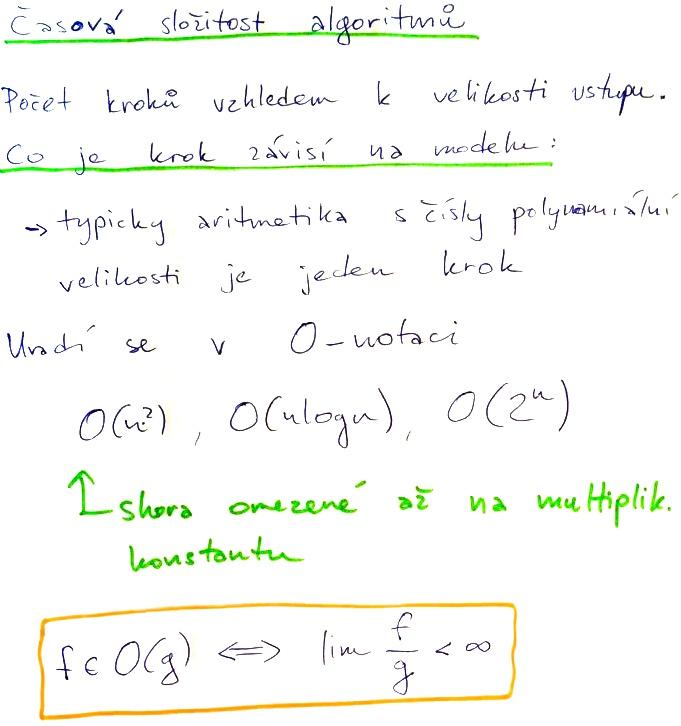 Časová složitost algoritmů
Počet kroků vzhledem k velikosti vstupu.
Co je krok závisí na modelu:
→ typicky aritmetika s čísly polynomiální
velikosti je jeden krok
Uvadí se v O-notaci
O(n²), O(nlogn), O(2ⁿ)
↑ shora omezené až na multiplik.
konstantu
f ∈ O(g) ⇔ lim f/g < ∞